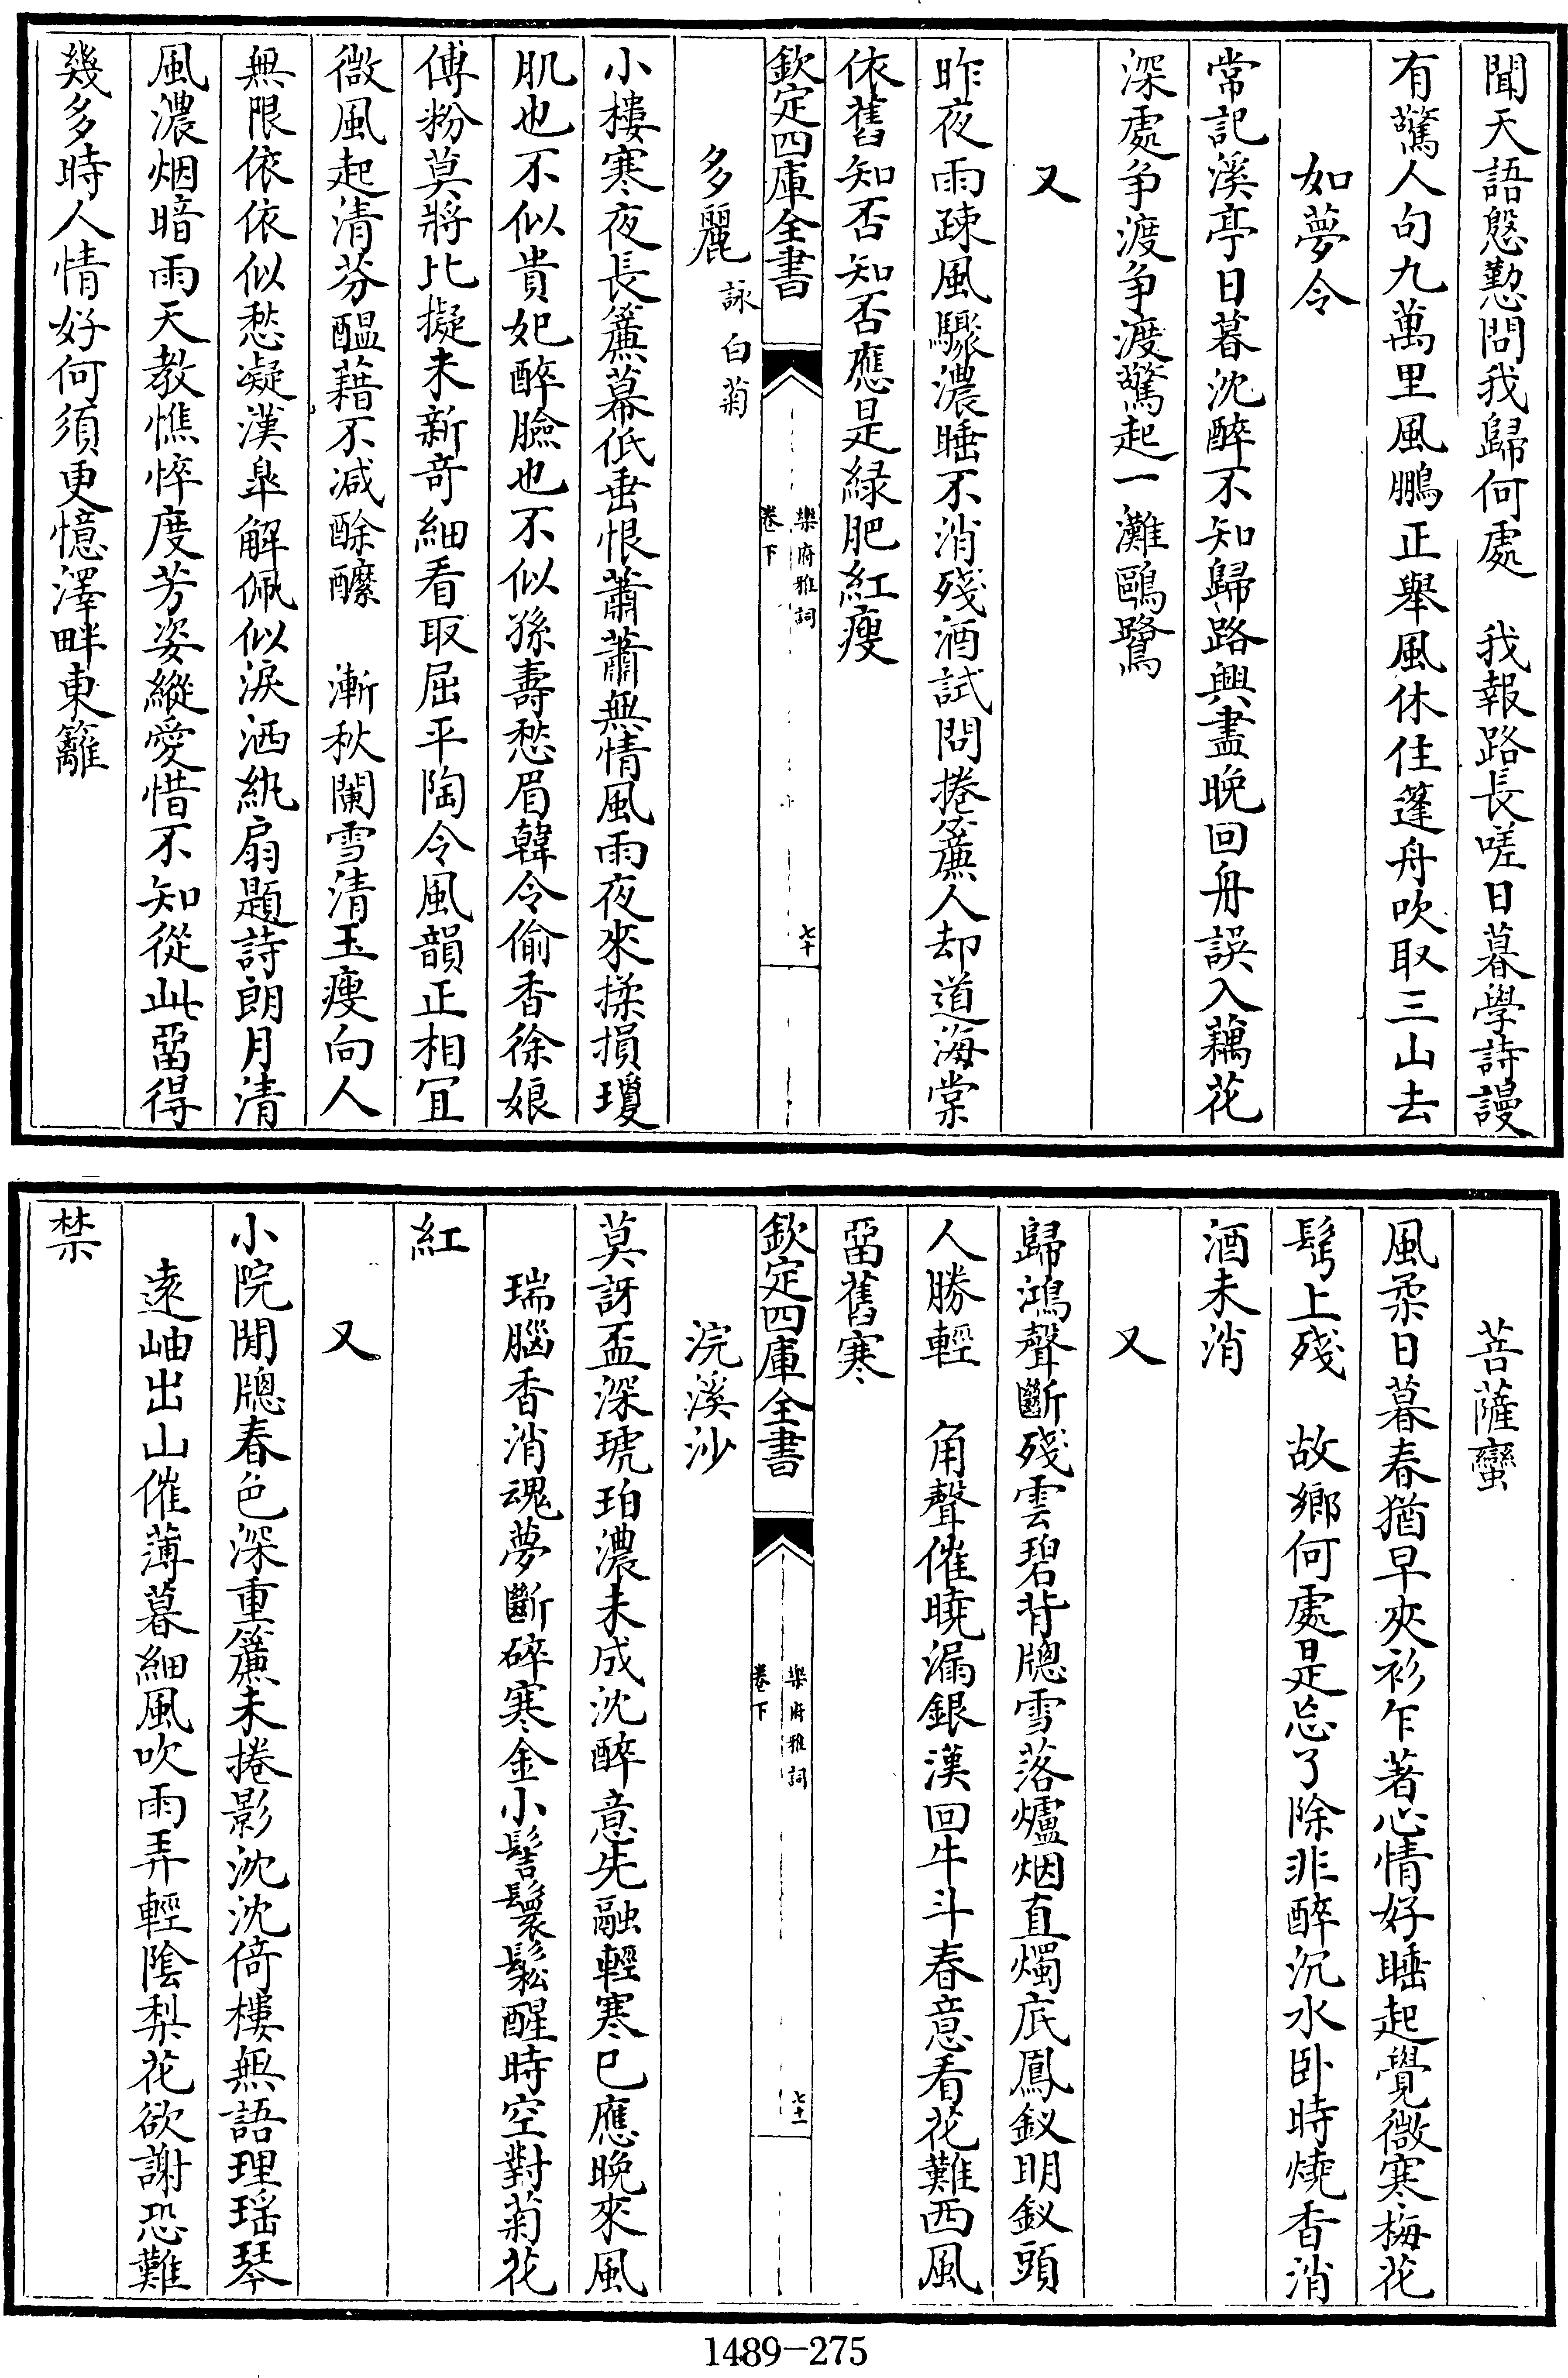 聞天語慇懃問我歸何處　我報路長嗟日暮學詩謾
有驚人句九萬里風鵬正舉風休住蓬舟吹取三山去
如夢令
常記溪亭日暮沈醉不知歸路興盡晚回舟誤入藕花
深處争渡争渡驚起一灘鷗鷺
又
昨夜雨疎風驟濃睡不消殘酒試問捲簾人却道海棠
依舊知否知否應是緑肥紅瘦
欽定四庫全書
樂府雅詞
卷下
七十
多麗詠白菊
小樓寒夜長簾幕低垂恨蕭蕭無情風雨夜來揉損瓊
肌也不似貴妃醉臉也不似孫壽愁眉韓令偷香徐娘
傅粉莫將比擬未新奇細看取屈平陶令風韻正相宜
微風起清芬醖藉不減酴醾　漸秋闌雪清玉瘦向人
無限依依似愁凝漢臯解佩似淚洒紈扇題詩朗月清
風濃烟暗雨天教憔悴度芳姿縱愛惜不知從此畱得
幾多時人情好何須更憶澤畔東籬
菩薩蠻
風柔日暮春猶早夾衫乍著心情好睡起覺微寒梅花
髩上殘　故鄉何處是忘了除非醉沉水卧時燒香消
酒未消
又
歸鴻聲斷殘雲碧背牎雪落爐烟直燭底鳳釵明釵頭
人勝輕　角聲催曉漏銀漢回牛斗春意看花難西風
畱舊寒
欽定四庫全書
樂府雅詞
卷下
七十一
浣溪沙
莫訝盃深琥珀濃未成沈醉意先融輕寒已應晚來風
瑞腦香消魂夢斷碎寒金小髻鬟鬆醒時空對菊花
紅
又
小院閒牎春色深重簾未捲影沈沈倚樓無語理瑶琴
遠岫出山催薄暮細風吹雨弄輕陰梨花欲謝恐難
禁
1489-275